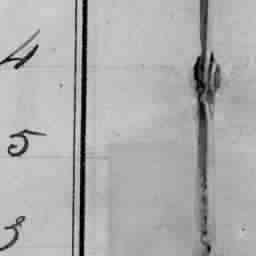 4
5
3